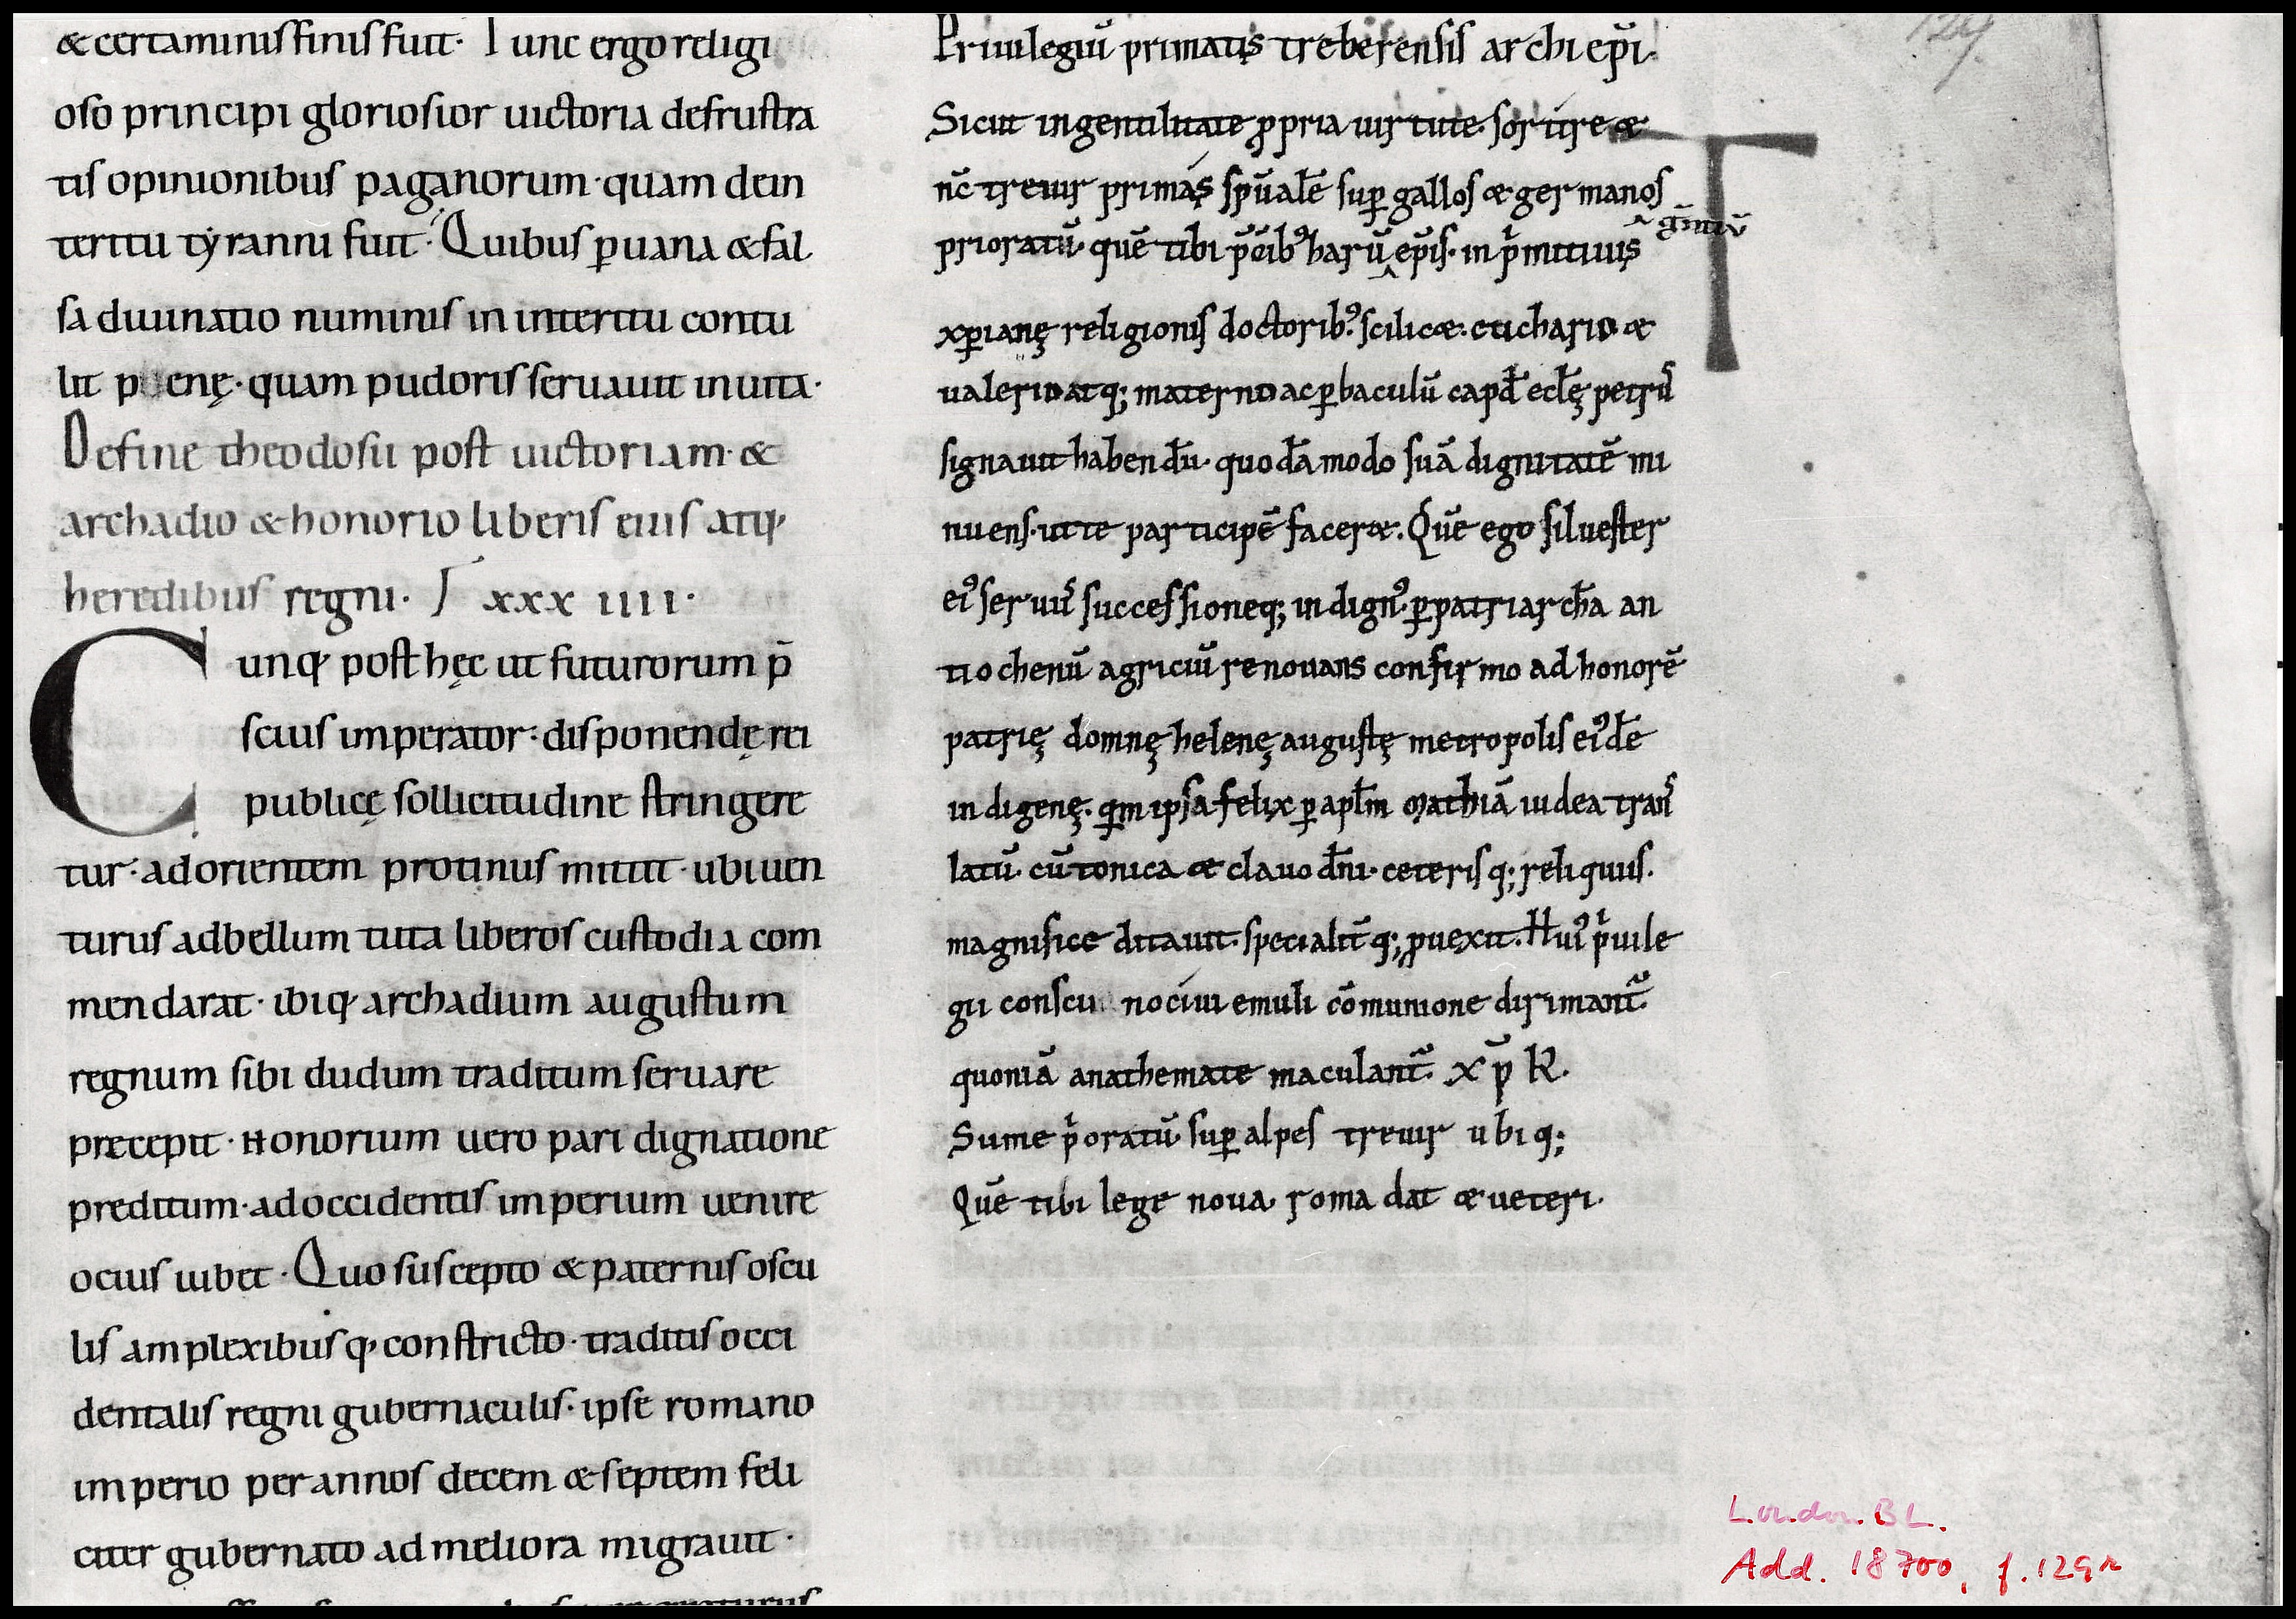 & certaminiſ finiſ fuit· Tunc ergo religi
oſo principi glorioſior uictoria defruſtra
tiſ opinionibuſ paganorum· quam dein
teritu tyranni fuit· Quibuſ ꝑ uana & fal
ſa diuinatio numiniſ in interitu contu
lit penę· quam pudoriſ ſeruauit in uita·
De fine theodoſii poſt uictoriam· &
archadio & honorio liberiſ eiuſ atq;
heredibuſ regni· xxx iiii·
Cunq; poſt hęc ut futurorum p̄
ſciuſ imperator· diſponendę rei
publicę ſollicitudine ſtringere
tur· ad orientem protinuſ mittit· ubi uen
turuſ ad bellum tuta liberoſ cuſtodia com
mendarat· ibiq; archadium auguſtum
regnum ſibi dudum traditum ſeruare
precepit· Honorium uero pari dignatione
preditum· ad occidentiſ imperium uenire
ociuſ iubet· Quo ſuſcepto & paterniſ oſcu
liſ amplexibuſq; conſtricto· traditiſ occi
dentaliſ regni gubernaculiſ· ipſe romano
imperio per annoſ decem & ſeptem feli
citer gubernato ad meliora migrauit·
Priuilegiū primatis treberenſiſ archiep̄i·
Sicut in gentilitate ꝓpria uirtute· ſortire &
nc̄ treuir primas ſp̄uale̅ ſuꝑ galloſ & germanoſ
prioratū· quē tibi p̄ cib᷒ harū ep̄iſ· in p̍mitiuis
gn̄tiū
xp̄ianę religioniſ doctorib᷒· ſcilic&· euchario &
ualerio atq; materno ac ꝑ baculū cap̄d ecl̄ę petruſ
ſignauit habendū· quodā modo ſuā dignitatē mi
nuenſ· ut te participē facer&· Quē ego ſilueſter
ei᷒ ſeruuſ ſucceſſioneq; indign᷒· ꝑ patriarchā an
tiochenū agriciū renouans confirmo ad honorē
patrię domnę helenę auguſtę metropoliſ ei᷒dē
indigenę· quā ipſa felix ꝑ apl̄m mathiā iudea tranſ
latū· cū tonica & clauo dn̄i· ceteriſq; reliquiiſ·
magnifice ditauit· ſpecialit̄q; ꝓuexit· Hui᷒ p̍uile
gii conſcii nociui emuli cōmunione dirimant᷑
quoniā anathemate maculant᷑ xp̄ R·
Sume p̍oratū ſuꝑ alpeſ treuir ubiq;
Quē tibi lege noua roma dat & ueteri·
129
London BL.
Add. 18700, f. 129r